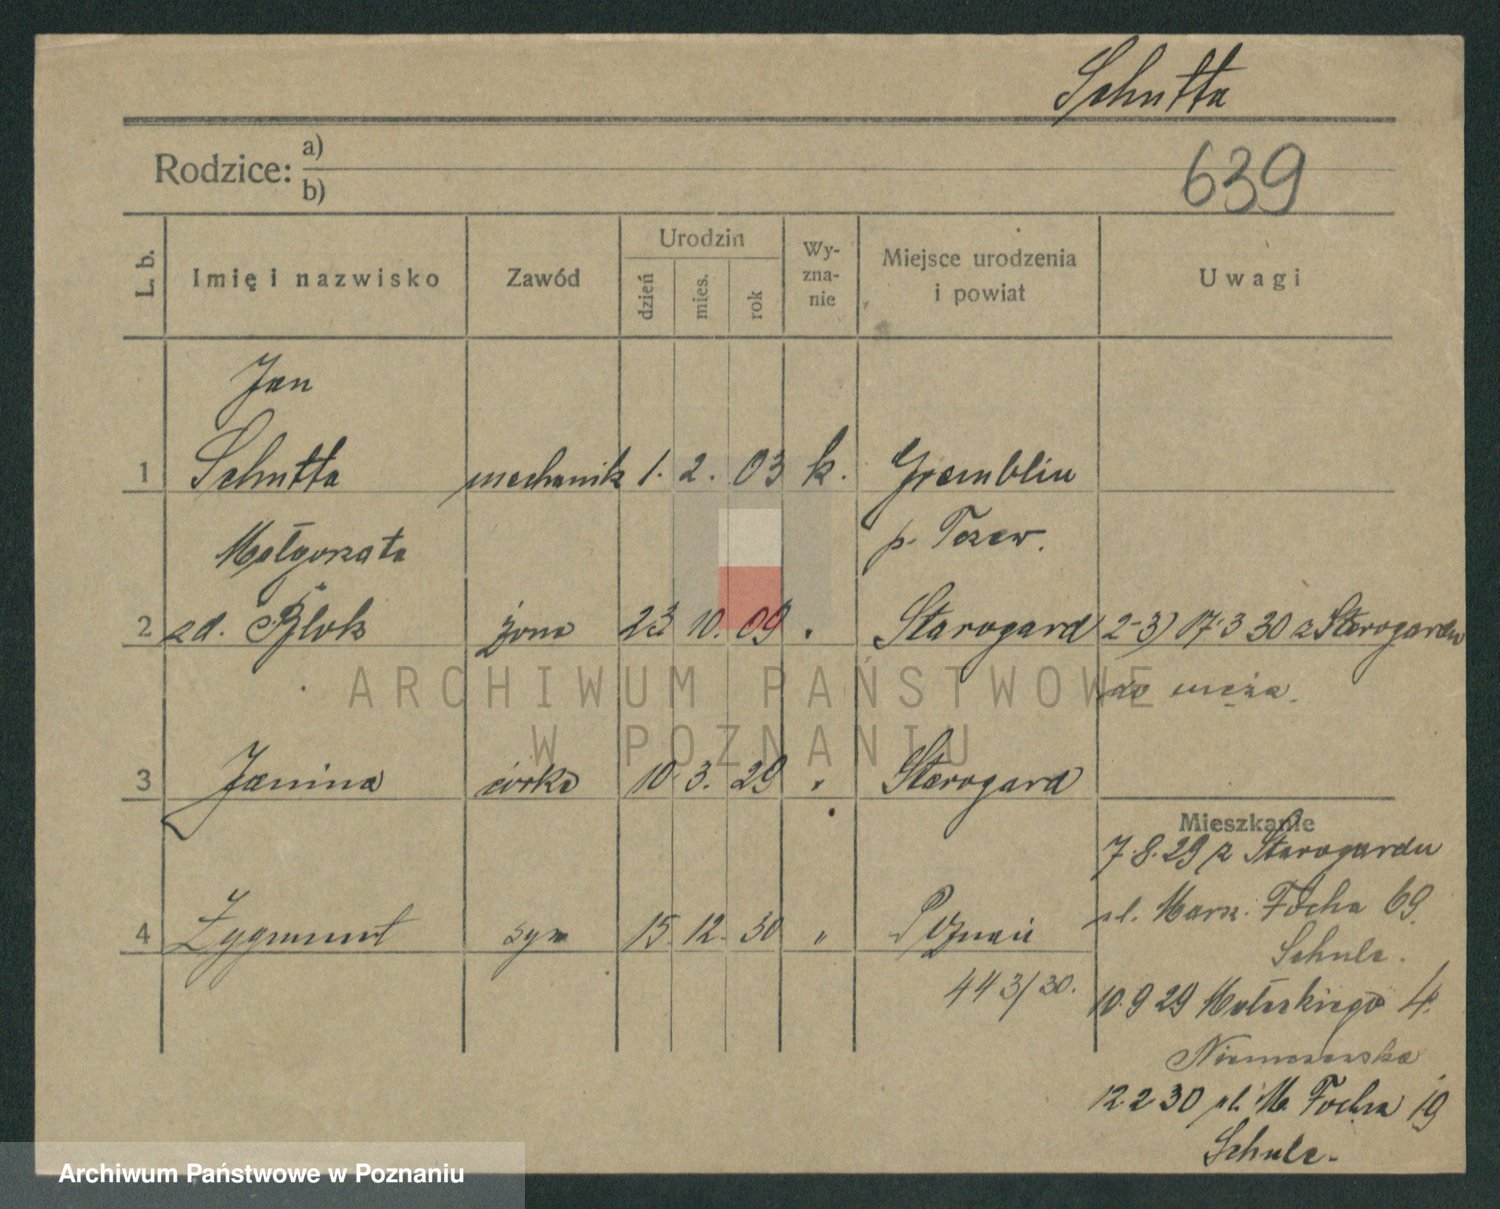 Schutta
Rodzice: a)
b)
639
L. b. Imię i nazwisko Zawód Urodzin dzień mies. rok Wy-zna-nie Miejsce urodzenia i powiat Uwagi
Jan
1 Schutta mechanik 1. 2. 03 k. Grembliu
p. Tczew.
Małgorzata
2 zd. Blok żona 23 10. 09 " Starogard 2-3) 17.3 30 z Starogardu
do męża.
3 Janina córka 10. 3. 29 " Starogard
Mieszkanie
7.8.29 z Starogardu
pl. Marsz. Focha 69.
4 Zygmunt syn 15. 12. 30 " Poznań
Schulz.
443/30.
10.9 29 Małeckiego 4.
12.2 30 pl. M. Focha 19
Schulz.
ARCHIWUM PAŃSTWOWE
W POZNANIU
Archiwum Państwowe w Poznaniu